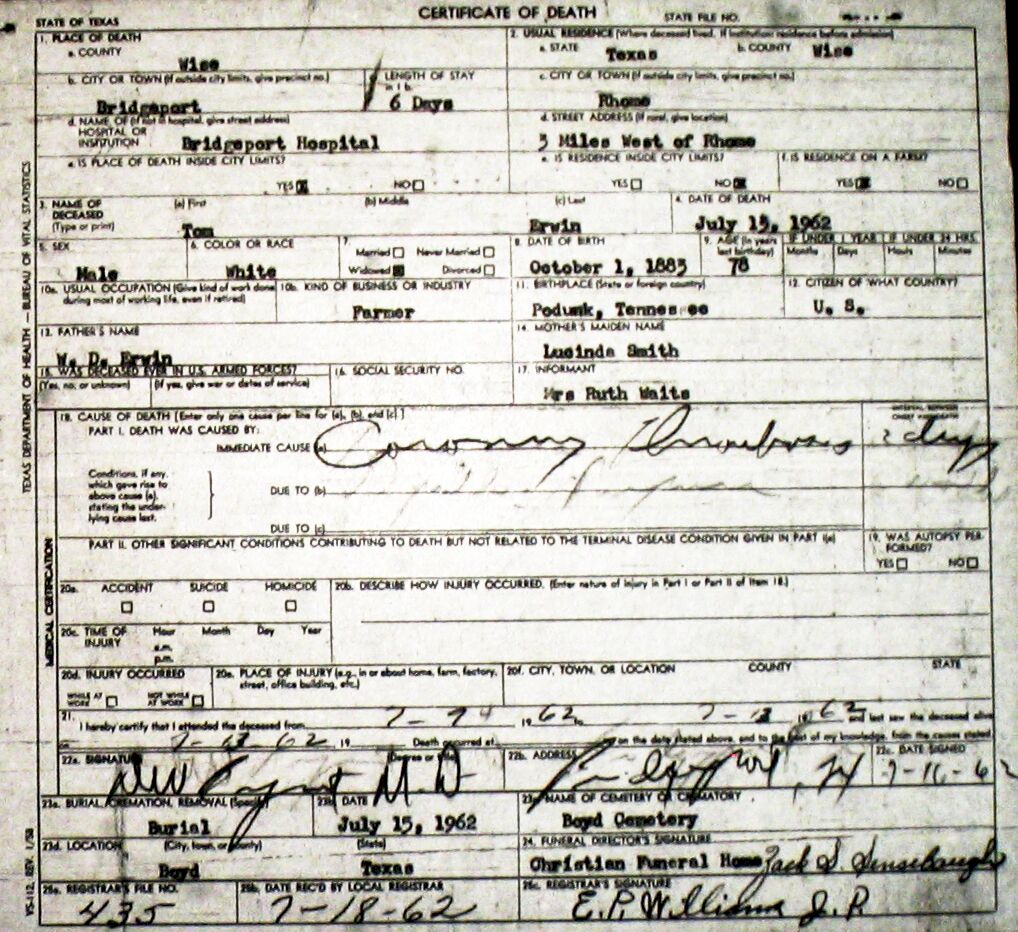 CERTIFICATE OF DEATH
STATE OF TEXAS
STATE FILE NO.
1. PLACE OF DEATH
a. COUNTY
Wise
2. USUAL RESIDENCE (Where deceased lived. If institution: residence before admission)
a. STATE Texas b. COUNTY Wise
b. CITY OR TOWN (If outside city limits, give precinct no.)
Bridgeport
c. LENGTH OF STAY in 1b.
6 Days
c. CITY OR TOWN (If outside city limits, give precinct no.)
Rhome
d. NAME OF (If not in hospital, give street address)
HOSPITAL OR
INSTITUTION Bridgeport Hospital
d. STREET ADDRESS (If rural, give location)
Miles West of Rhome
e. IS PLACE OF DEATH INSIDE CITY LIMITS?
YES NO
e. IS RESIDENCE INSIDE CITY LIMITS?
YES NO
f. IS RESIDENCE ON A FARM?
YES NO
3. NAME OF
DECEASED
(Type or print)
(a) First (b) Middle (c) Last
Tom Erwin
4. DATE OF DEATH
July 13, 1962
5. SEX
Male
6. COLOR OR RACE
White
7. Married Never Married
Widowed Divorced
8. DATE OF BIRTH
October 1, 1883
9. AGE (In years last birthday)
78
IF UNDER 1 YEAR
Months Days
IF UNDER 24 HRS.
Hours Minutes
10a. USUAL OCCUPATION (Give kind of work done
during most of working life, even if retired)
10b. KIND OF BUSINESS OR INDUSTRY
Farmer
11. BIRTHPLACE (State or foreign country)
Podunk, Tennessee
12. CITIZEN OF WHAT COUNTRY?
U. S.
13. FATHER'S NAME
W. D. Erwin
14. MOTHER'S MAIDEN NAME
Lucinda Smith
15. WAS DECEASED EVER IN U.S. ARMED FORCES?
(Yes, no, or unknown) (If yes, give war or dates of service)
16. SOCIAL SECURITY NO.
17. INFORMANT
Mrs Ruth Waits
18. CAUSE OF DEATH [Enter only one cause per line for (a), (b), and (c).]
PART I. DEATH WAS CAUSED BY:
IMMEDIATE CAUSE (a) Coronary Thrombosis
INTERVAL BETWEEN
ONSET AND DEATH
days
Conditions, if any,
which gave rise to
above cause (a),
stating the under-
lying cause last.
DUE TO (b)
DUE TO (c)
PART II. OTHER SIGNIFICANT CONDITIONS CONTRIBUTING TO DEATH BUT NOT RELATED TO THE TERMINAL DISEASE CONDITION GIVEN IN PART I(a)
19. WAS AUTOPSY PER-
FORMED?
YES NO
20a. ACCIDENT SUICIDE HOMICIDE
20b. DESCRIBE HOW INJURY OCCURRED. (Enter nature of injury in Part I or Part II of Item 18.)
20c. TIME OF
INJURY
Hour Month Day Year
a.m.
p.m.
20d. INJURY OCCURRED
WHILE AT WORK NOT WHILE AT WORK
20e. PLACE OF INJURY (e.g., in or about home, farm, factory,
street, office building, etc.)
20f. CITY, TOWN, OR LOCATION COUNTY STATE
21.
I hereby certify that I attended the deceased from 1962 to 1962 and last saw the deceased alive
on 7-13-62 19 Death occurred at on the date stated above, and to the best of my knowledge, from the causes stated.
22a. SIGNATURE (Degree or title)
M.D
22b. ADDRESS
Bridgeport, TX
22c. DATE SIGNED
7-16-62
23a. BURIAL, CREMATION, REMOVAL (Specify)
Burial
23b. DATE
July 15, 1962
23c. NAME OF CEMETERY OR CREMATORY
Boyd Cemetery
23d. LOCATION (City, town, or county) (State)
Boyd Texas
24. FUNERAL DIRECTOR'S SIGNATURE
Christian Funeral Home Jack D. Sensebaugh
25a. REGISTRAR'S FILE NO.
435
25b. DATE REC'D BY LOCAL REGISTRAR
7-18-62
25c. REGISTRAR'S SIGNATURE
E.P. Williams J.P.
TEXAS DEPARTMENT OF HEALTH — BUREAU OF VITAL STATISTICS
MEDICAL CERTIFICATION
VS-112, REV. 1/58